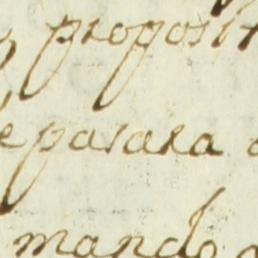 proposit
pasara
mando